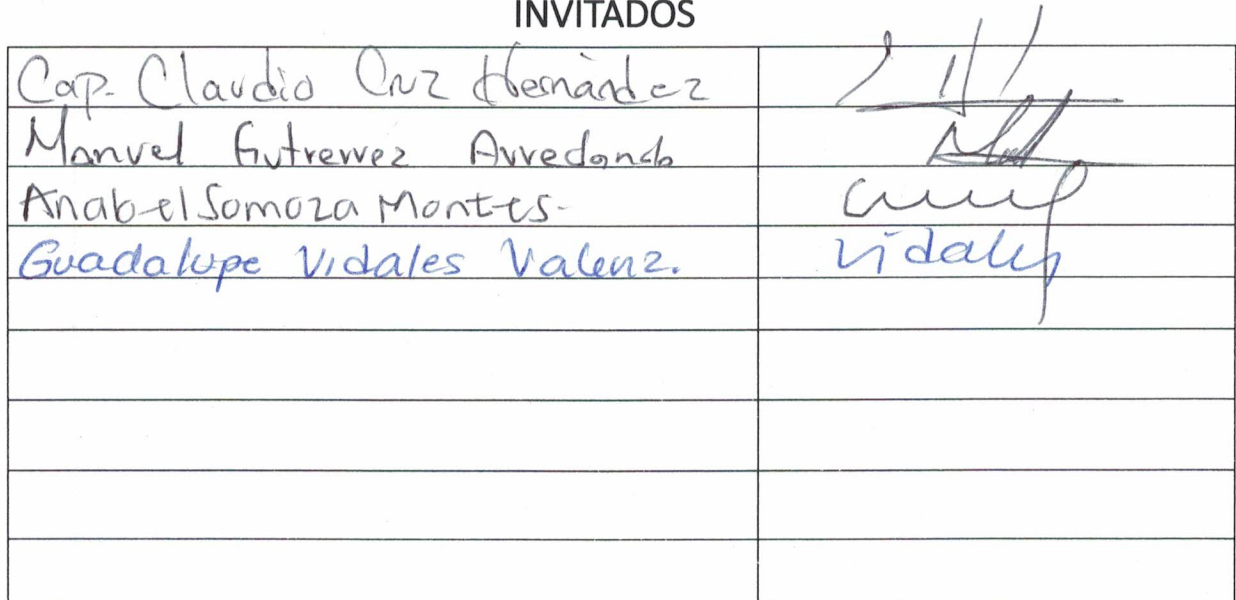 INVITADOS
Cap. Claudio Cruz Hernández
Manuel Gutierrez Arredondo
Anabel Somoza Montes-
Guadalupe Vidales Valenz. Vidales